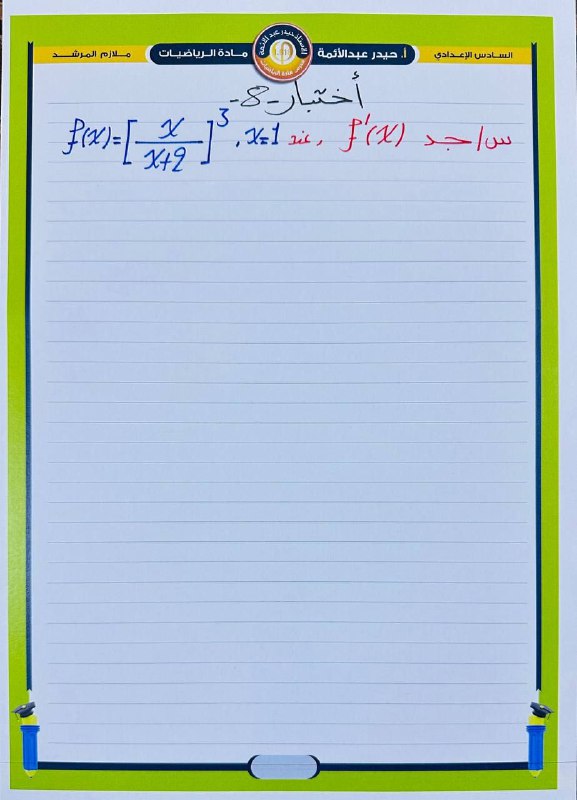 السادس الإعدادي أ. حيدر عبدالأئمة مادة الرياضيات ملازم المرشد
أختبار -8-
س/ جد f'(x) عند x=1 , f(x)=[x/(x+2)]^3